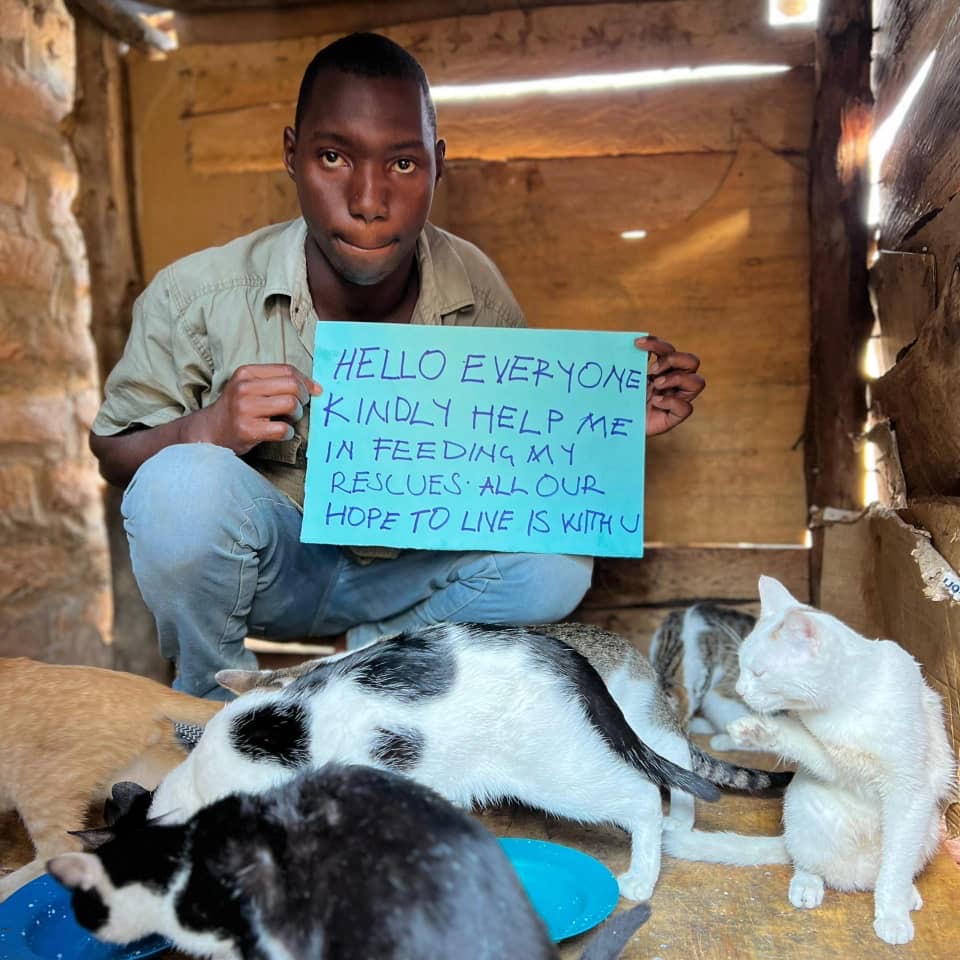 HELLO EVERYONE
KINDLY HELP ME
IN FEEDING MY
RESCUES. ALL OUR
HOPE TO LIVE IS WITH U